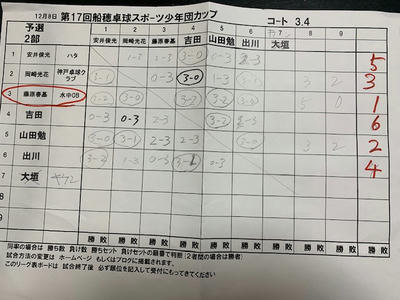 12月8日 第17回船穂卓球スポーツ少年団カップ
予選 コート 3.4
2部 1 2 3 4 5 6 7 8 9
安井俊光 岡崎光花 藤原春基 吉田 山田勉 出川 大垣
1 安井俊光 ハタ 1-3 3-0 5
2 岡崎光花 神戸卓球クラブ 3-1 0-3 3-0 1-3 3-1 3 2 3
3 藤原春基 水中OB 3-2 3-0 3-0 3-2 3-0 5 0 1
4 吉田 0-3 0-3 0-3 6
5 山田勉 3-0 3-1 2-3 3-0 2
6 出川 3-2 1-3 0-3 0-3 4
7 大垣
勝 敗 勝 敗 勝 敗 勝 敗 勝 敗 勝 敗 勝 敗 勝 敗 勝 敗
同率の場合は 勝ち数 負け数 勝ちセット 負けセットの順番で判断(2者間の場合は勝者)
試合方法の変更は ホームページ もしくはブログに掲載されます。
このリーグ表ボードは 試合終了後 必ず順位を記入して受付にもってきてください